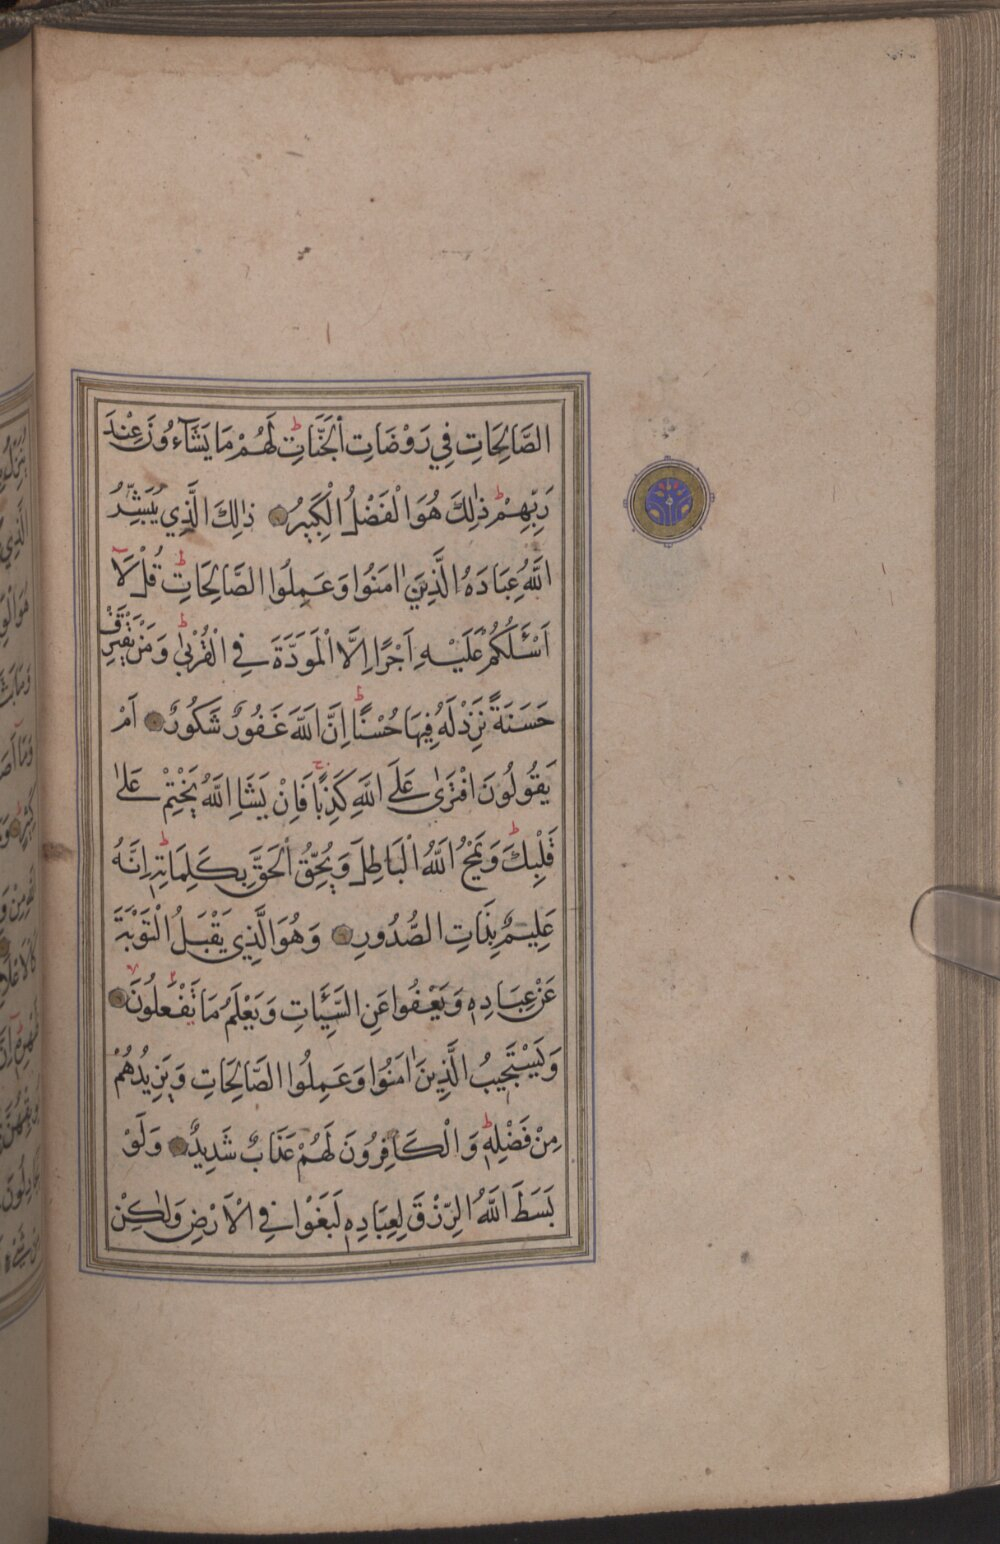 الصَّالِحَاتِ فِي رَوْضَاتِ الْجَنَّاتِ لَهُمْ مَا يَشَآءُونَ عِنْدَ
رَبِّهِمْ ذٰلِكَ هُوَ الْفَضْلُ الْكَبِيرُ ذٰلِكَ الَّذِي يُبَشِّرُ
اللّٰهُ عِبَادَهُ الَّذِينَ اٰمَنُوا وَعَمِلُوا الصَّالِحَاتِ قُلْ لَآ
اَسْـَٔلُكُمْ عَلَيْهِ اَجْرًا اِلَّا الْمَوَدَّةَ فِي الْقُرْبٰى وَمَنْ يَقْتَرِفْ
حَسَنَةً نَزِدْ لَهُ فِيهَا حُسْنًا اِنَّ اللّٰهَ غَفُورٌ شَكُورٌ اَمْ
يَقُولُونَ افْتَرٰى عَلَى اللّٰهِ كَذِبًا فَاِنْ يَشَاِ اللّٰهُ يَخْتِمْ عَلٰى
قَلْبِكَ وَيَمْحُ اللّٰهُ الْبَاطِلَ وَيُحِقُّ الْحَقَّ بِكَلِمَاتِهِ اِنَّهُ
عَلِيمٌ بِذَاتِ الصُّدُورِ وَهُوَ الَّذِي يَقْبَلُ التَّوْبَةَ
عَنْ عِبَادِهِ وَيَعْفُوا عَنِ السَّيِّـَٔاتِ وَيَعْلَمُ مَا تَفْعَلُونَ
وَيَسْتَجِيبُ الَّذِينَ اٰمَنُوا وَعَمِلُوا الصَّالِحَاتِ وَيَزِيدُهُمْ
مِنْ فَضْلِهِ وَالْكَافِرُونَ لَهُمْ عَذَابٌ شَدِيدٌ وَلَوْ
بَسَطَ اللّٰهُ الرِّزْقَ لِعِبَادِهِ لَبَغَوْا فِي الْاَرْضِ وَلٰكِنْ